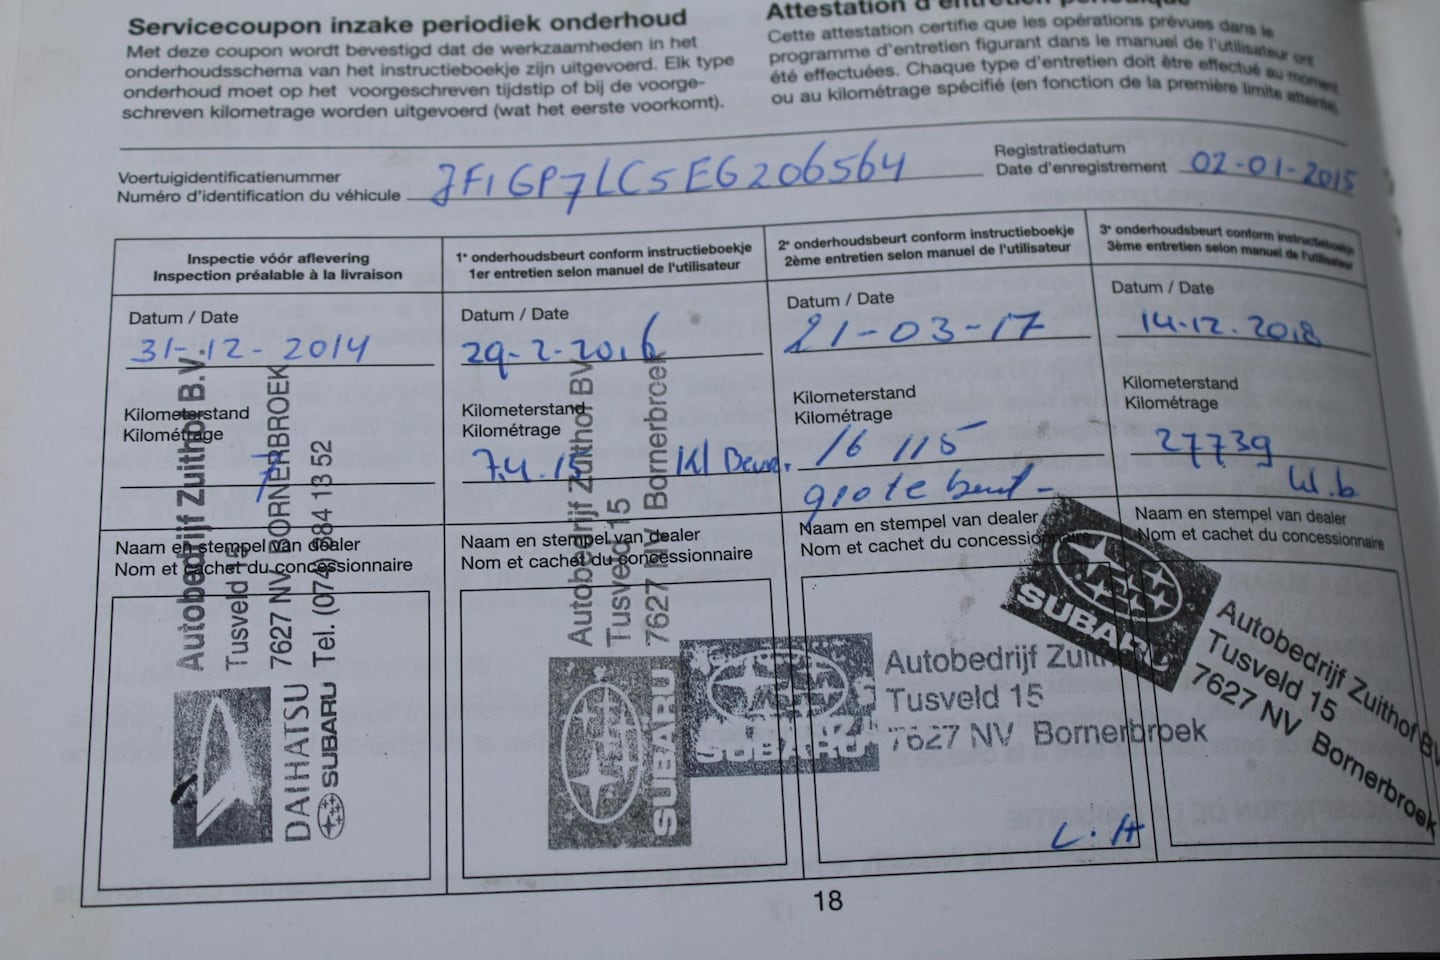 Servicecoupon inzake periodiek onderhoud
Met deze coupon wordt bevestigd dat de werkzaamheden in het
onderhoudsschema van het instructieboekje zijn uitgevoerd. Elk type
onderhoud moet op het voorgeschreven tijdstip of bij de voorge-
schreven kilometrage worden uitgevoerd (wat het eerste voorkomt).
Attestation d'entretien périodique
Cette attestation certifie que les opérations prévues dans le
programme d'entretien figurant dans le manuel de l'utilisateur ont
été effectuées. Chaque type d'entretien doit être effectué au moment
ou au kilométrage spécifié (en fonction de la première limite atteinte).
Voertuigidentificatienummer
Numéro d'identification du véhicule
JF1GP7LC5EG206564
Registratiedatum
Date d'enregistrement
02-01-2015
Inspectie vóór aflevering
Inspection préalable à la livraison
Datum / Date
31-12-2014
Kilometerstand
Kilométrage
7
Naam en stempel van dealer
Nom et cachet du concessionnaire
Autobedrijf Zuithof B.V.
Tusveld 15
7627 NV BORNERBROEK
Tel. (074) 384 13 52
DAIHATSU
SUBARU
1e onderhoudsbeurt conform instructieboekje
1er entretien selon manuel de l'utilisateur
Datum / Date
29-2-2016
Kilometerstand
Kilométrage
Kl Beur.
Naam en stempel van dealer
Nom et cachet du concessionnaire
Autobedrijf Zuithof BV
Tusveld 15
7627 NV Bornerbroek
SUBARU
2e onderhoudsbeurt conform instructieboekje
2ème entretien selon manuel de l'utilisateur
Datum / Date
21-03-17
Kilometerstand
Kilométrage
16 115
grote beurt -
Naam en stempel van dealer
Nom et cachet du concessionnaire
SUBARU
Autobedrijf Zuith
Tusveld 15
7627 NV Bornerbroek
L.H
3e onderhoudsbeurt conform instructieboekje
3ème entretien selon manuel de l'utilisateur
Datum / Date
14-12-2018
Kilometerstand
Kilométrage
27739
W.b
Naam en stempel van dealer
Nom et cachet du concessionnaire
SUBARU
Autobedrijf Zuithof BV
Tusveld 15
7627 NV Bornerbroek
18